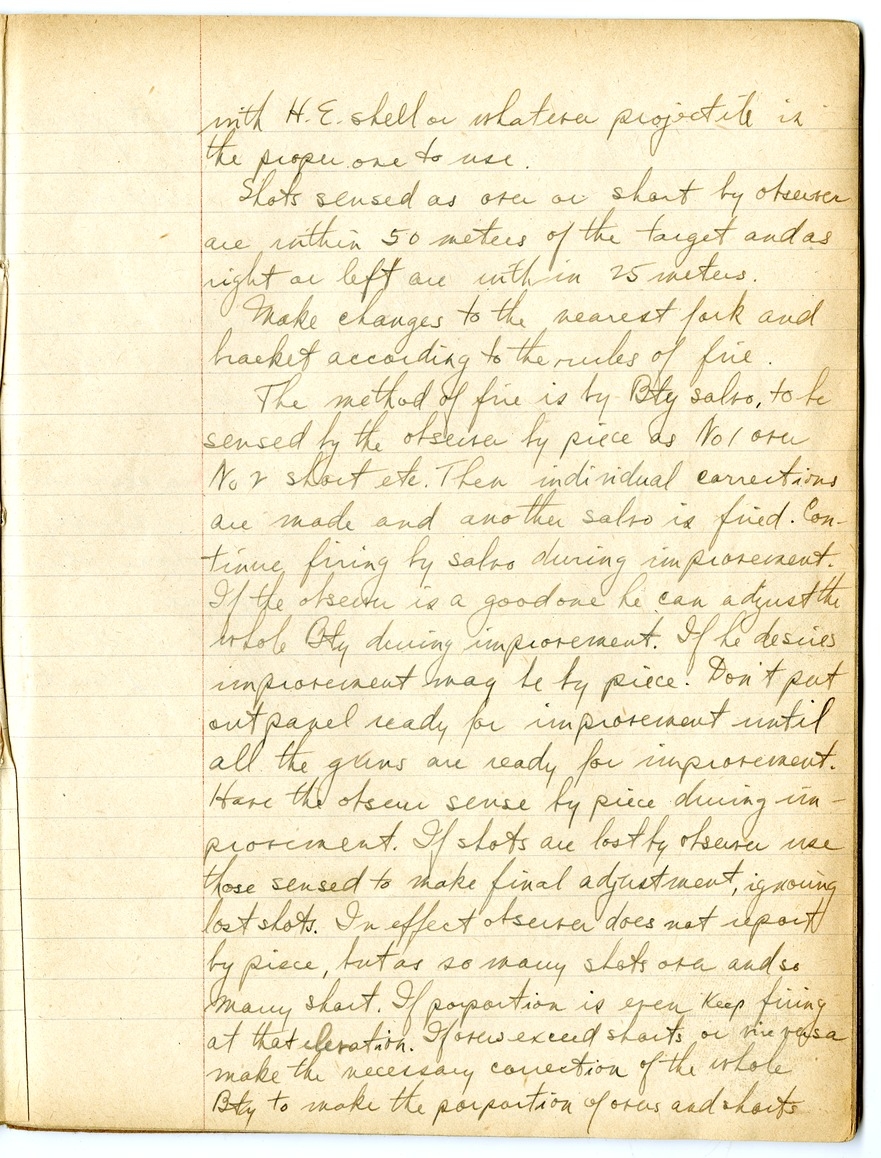 with H.E. shell or whatever projectile is
the proper one to use.
Shots sensed as over or short by observer
are within 50 meters of the target and as
right or left are within 25 meters.
Make changes to the nearest fork and
bracket according to the rules of fire.
The method of fire is by Bty salvo, to be
sensed by the observer by piece as No 1 over
No 2 short etc. Then individual corrections
are made and another salvo is fired. Con-
tinue firing by salvo during improvement.
If the observer is a good one he can adjust the
whole Bty during improvement. If he desires
improvement may be by piece. Don't put
out panel ready for improvement until
all the guns are ready for improvement.
Have the obseur sense by piece during im-
provement. If shots are lost by observer use
those sensed to make final adjustment, ignoring
lost shots. In effect observer does not report
by piece, but as so many shots over and so
many short. If porportion is even keep firing
at that elevation. If overs exceed shorts or vice versa
make the necessary correction of the whole
Bty to make the porportion of overs and shorts